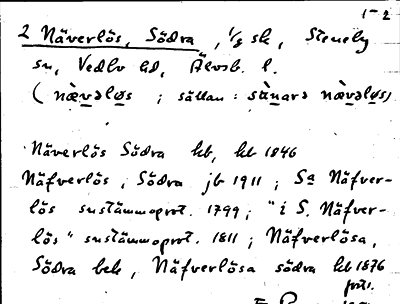 1-2
2 Näverlös, Södra, 1/2 sk, Steneby
sn, Vedbo hd, Älvsb. l.
(nævəløs ; sällan : sànarə nævəløs)
Näverlös Södra kb, hk 1846
Näfverlös, Södra jb 1911 ; Sa Näfver-
lös sustämmoprot. 1799 ; "i S. Näfver-
lös" sustämmoprot. 1811 ; Näfverlösa,
Södra bek, Näfverlösa södra hk 1876
forts.